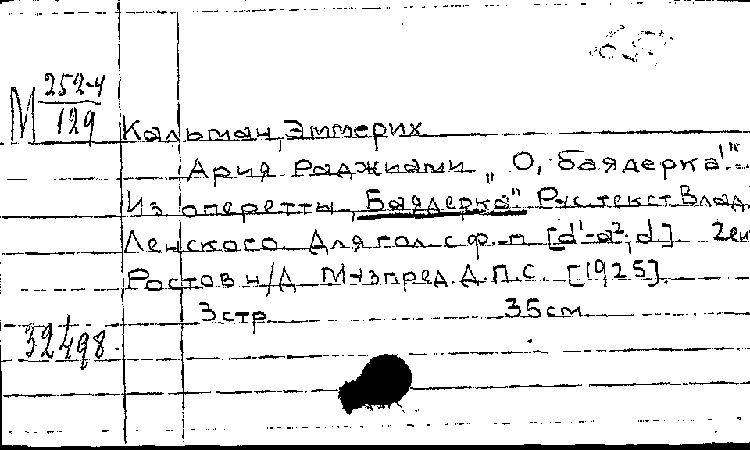 М 252-4/129
Кальман, Эммерих
Ария Раджами „О, баядерка!"
Из оперетты „Баядерка" Рус. текст Влад.
Ленского Для гол. с ф.-п. [d¹-a², d]
Ростов н/Д Музпред Д.П.С. [1925]
3 стр. 35 см.